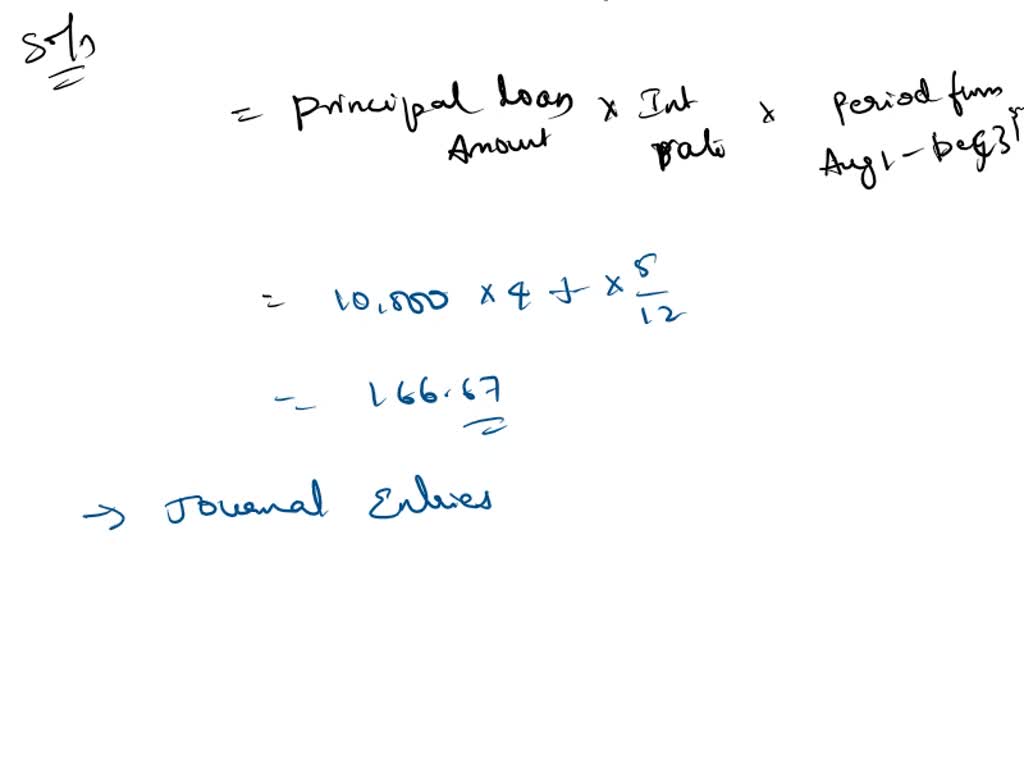 Soln
= Principal Loan Amount × Int rate × Period from Aug 1 - Dec 31
= 10,000 × 4 % × 5/12
= 166.67
→ Journal Entries